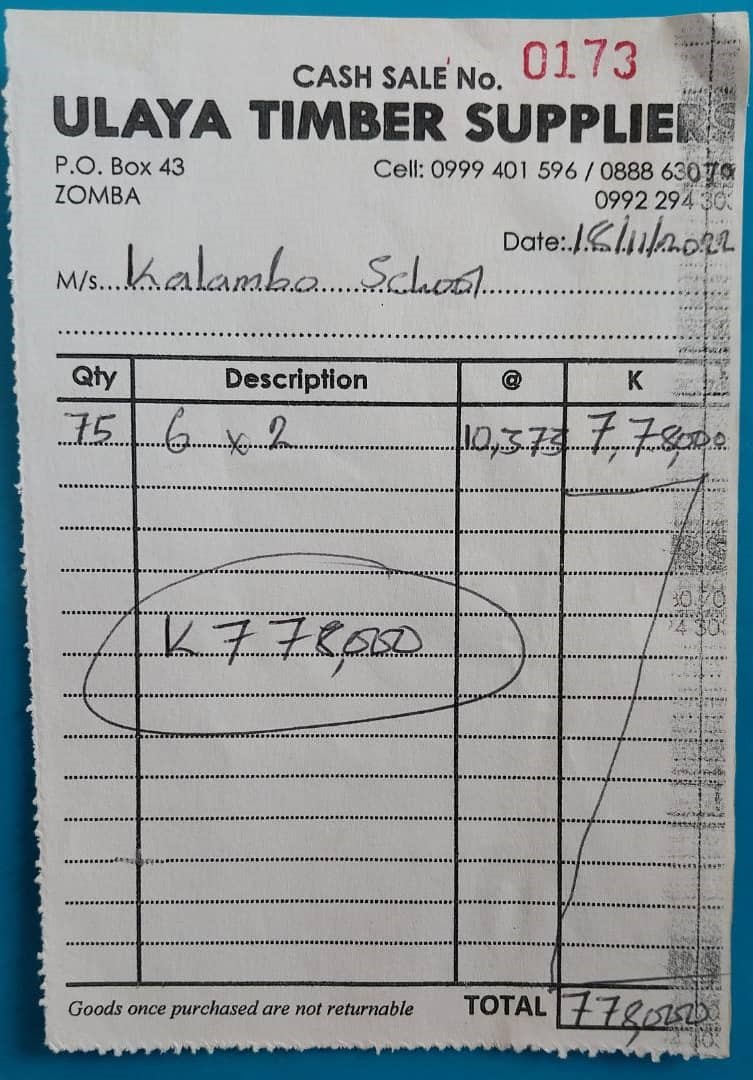 CASH SALE No. 0173
ULAYA TIMBER SUPPLIERS
P.O. Box 43
Cell: 0999 401 596 / 0888 630 70
ZOMBA
0992 294 30
Date: 18/11/2022
M/s. Kalambo School
Qty Description @ K
75 6 x 2 10,373 7,78,000
K778,000
Goods once purchased are not returnable TOTAL 778,000